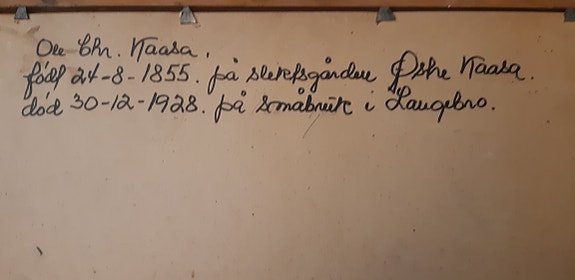 Ole Chr. Kaasa.
født 24-8-1855. på slektsgården Øshe Kaasa.
død 30-12-1928. på småbruk i Langebro.